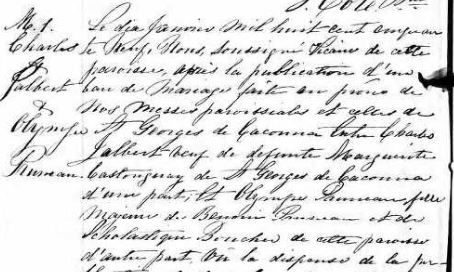 M. 1. Le dix Janvier mil huit cent cinquan
Charles te neuf, Nous, soussigné Vicaire de cette
paroisse, après la publication d'un
Jalbert ban de mariage fait au prone de
& nos messes paroissiales et celles de
Olympe St Georges de Cacouna entre Charles
Jalbert veuf de defunte Marguerite
Pruneau. Castonguay de St Georges de Cacouna
d'une part; Et Olympe Pruneau fille
majeure de Benonie Pruneau et de
Scholastique Boucher de cette paroisse
d'autre part. Vu la dispense de la